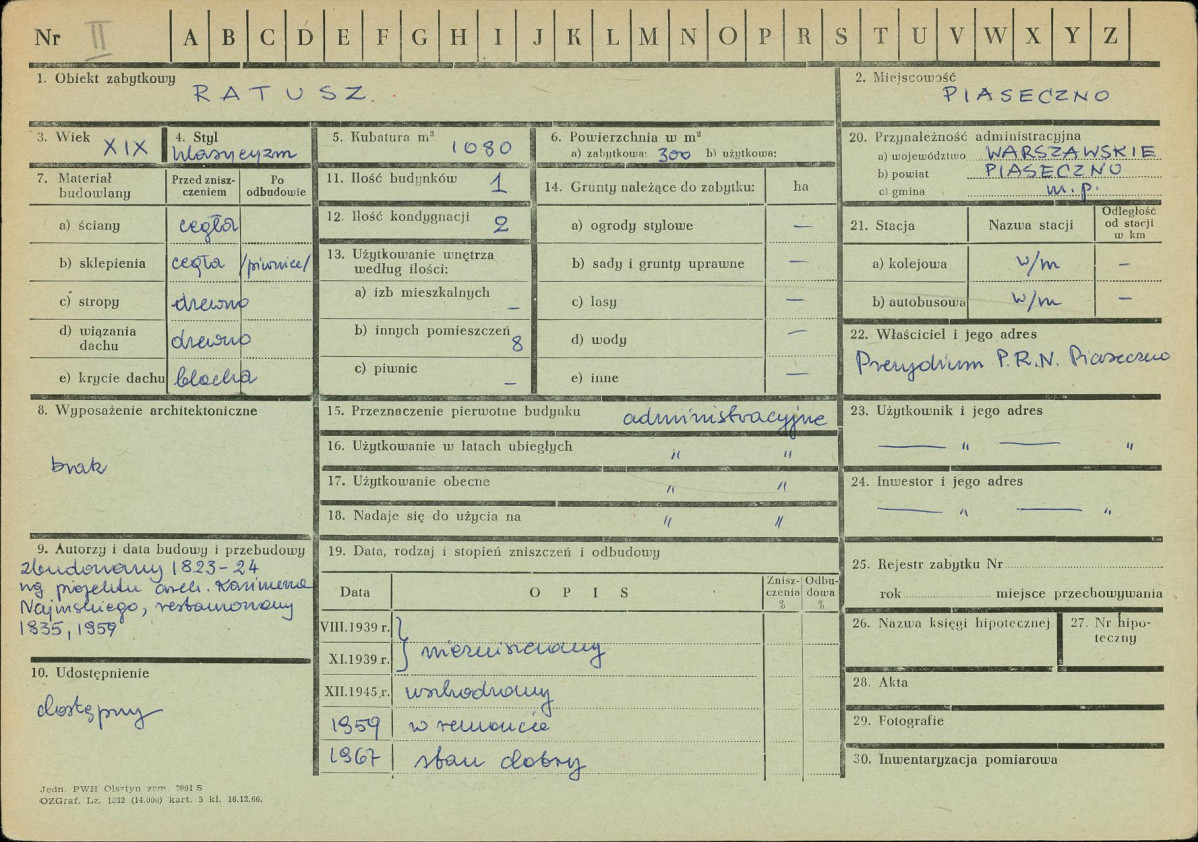 Nr II A B C D E F G H I J K L M N O P R S T U V W X Y Z
1. Obiekt zabytkowy
RATUSZ.
2. Miejscowość
PIASECZNO
3. Wiek XIX
4. Styl klasycyzm
5. Kubatura m³ 1080
6. Powierzchnia w m²
a) zabytkowa: 300 b) użytkowa:
7. Materiał budowlany
Przed zniszczeniem
Po odbudowie
a) ściany cegła
b) sklepienia cegła /piwnice/
c) stropy drewno
d) wiązania dachu drewno
e) krycie dachu blacha
8. Wyposażenie architektoniczne
brak
9. Autorzy i data budowy i przebudowy
zbudowany 1823-24
wg projektu arch. Kazimierza
Najmskiego, restaurowany
1835, 1959
10. Udostępnienie
dostępny
11. Ilość budynków 1
12. Ilość kondygnacji 2
13. Użytkowanie wnętrza
według ilości:
a) izb mieszkalnych –
b) innych pomieszczeń 8
c) piwnic –
14. Grunty należące do zabytku: ha
a) ogrody stylowe –
b) sady i grunty uprawne –
c) lasy –
d) wody –
e) inne –
15. Przeznaczenie pierwotne budynku administracyjne
16. Użytkowanie w latach ubiegłych " "
17. Użytkowanie obecne " "
18. Nadaje się do użycia na " "
19. Data, rodzaj i stopień zniszczeń i odbudowy
Data OPIS Zniszczenia % Odbudowa %
VIII.1939 r.
XI.1939 r. } niezniszczony
XII.1945 r. uszkodzony
1959 w remoncie
1967 stan dobry
20. Przynależność administracyjna
a) województwo WARSZAWSKIE
b) powiat PIASECZNO
c) gmina m.p.
21. Stacja Nazwa stacji Odległość od stacji w km
a) kolejowa w/m –
b) autobusowa w/m –
22. Właściciel i jego adres
Prezydium P.R.N. Piaseczno
23. Użytkownik i jego adres
— " — "
24. Inwestor i jego adres
— " — "
25. Rejestr zabytku Nr
rok miejsce przechowywania
26. Nazwa księgi hipotecznej
27. Nr hipoteczny
28. Akta
29. Fotografie
30. Inwentaryzacja pomiarowa
Jedn. PWH Olsztyn zam. 3991 S
OZGraf. Lz. 1832 (14.000) kart. 3 kl. 16.12.66.